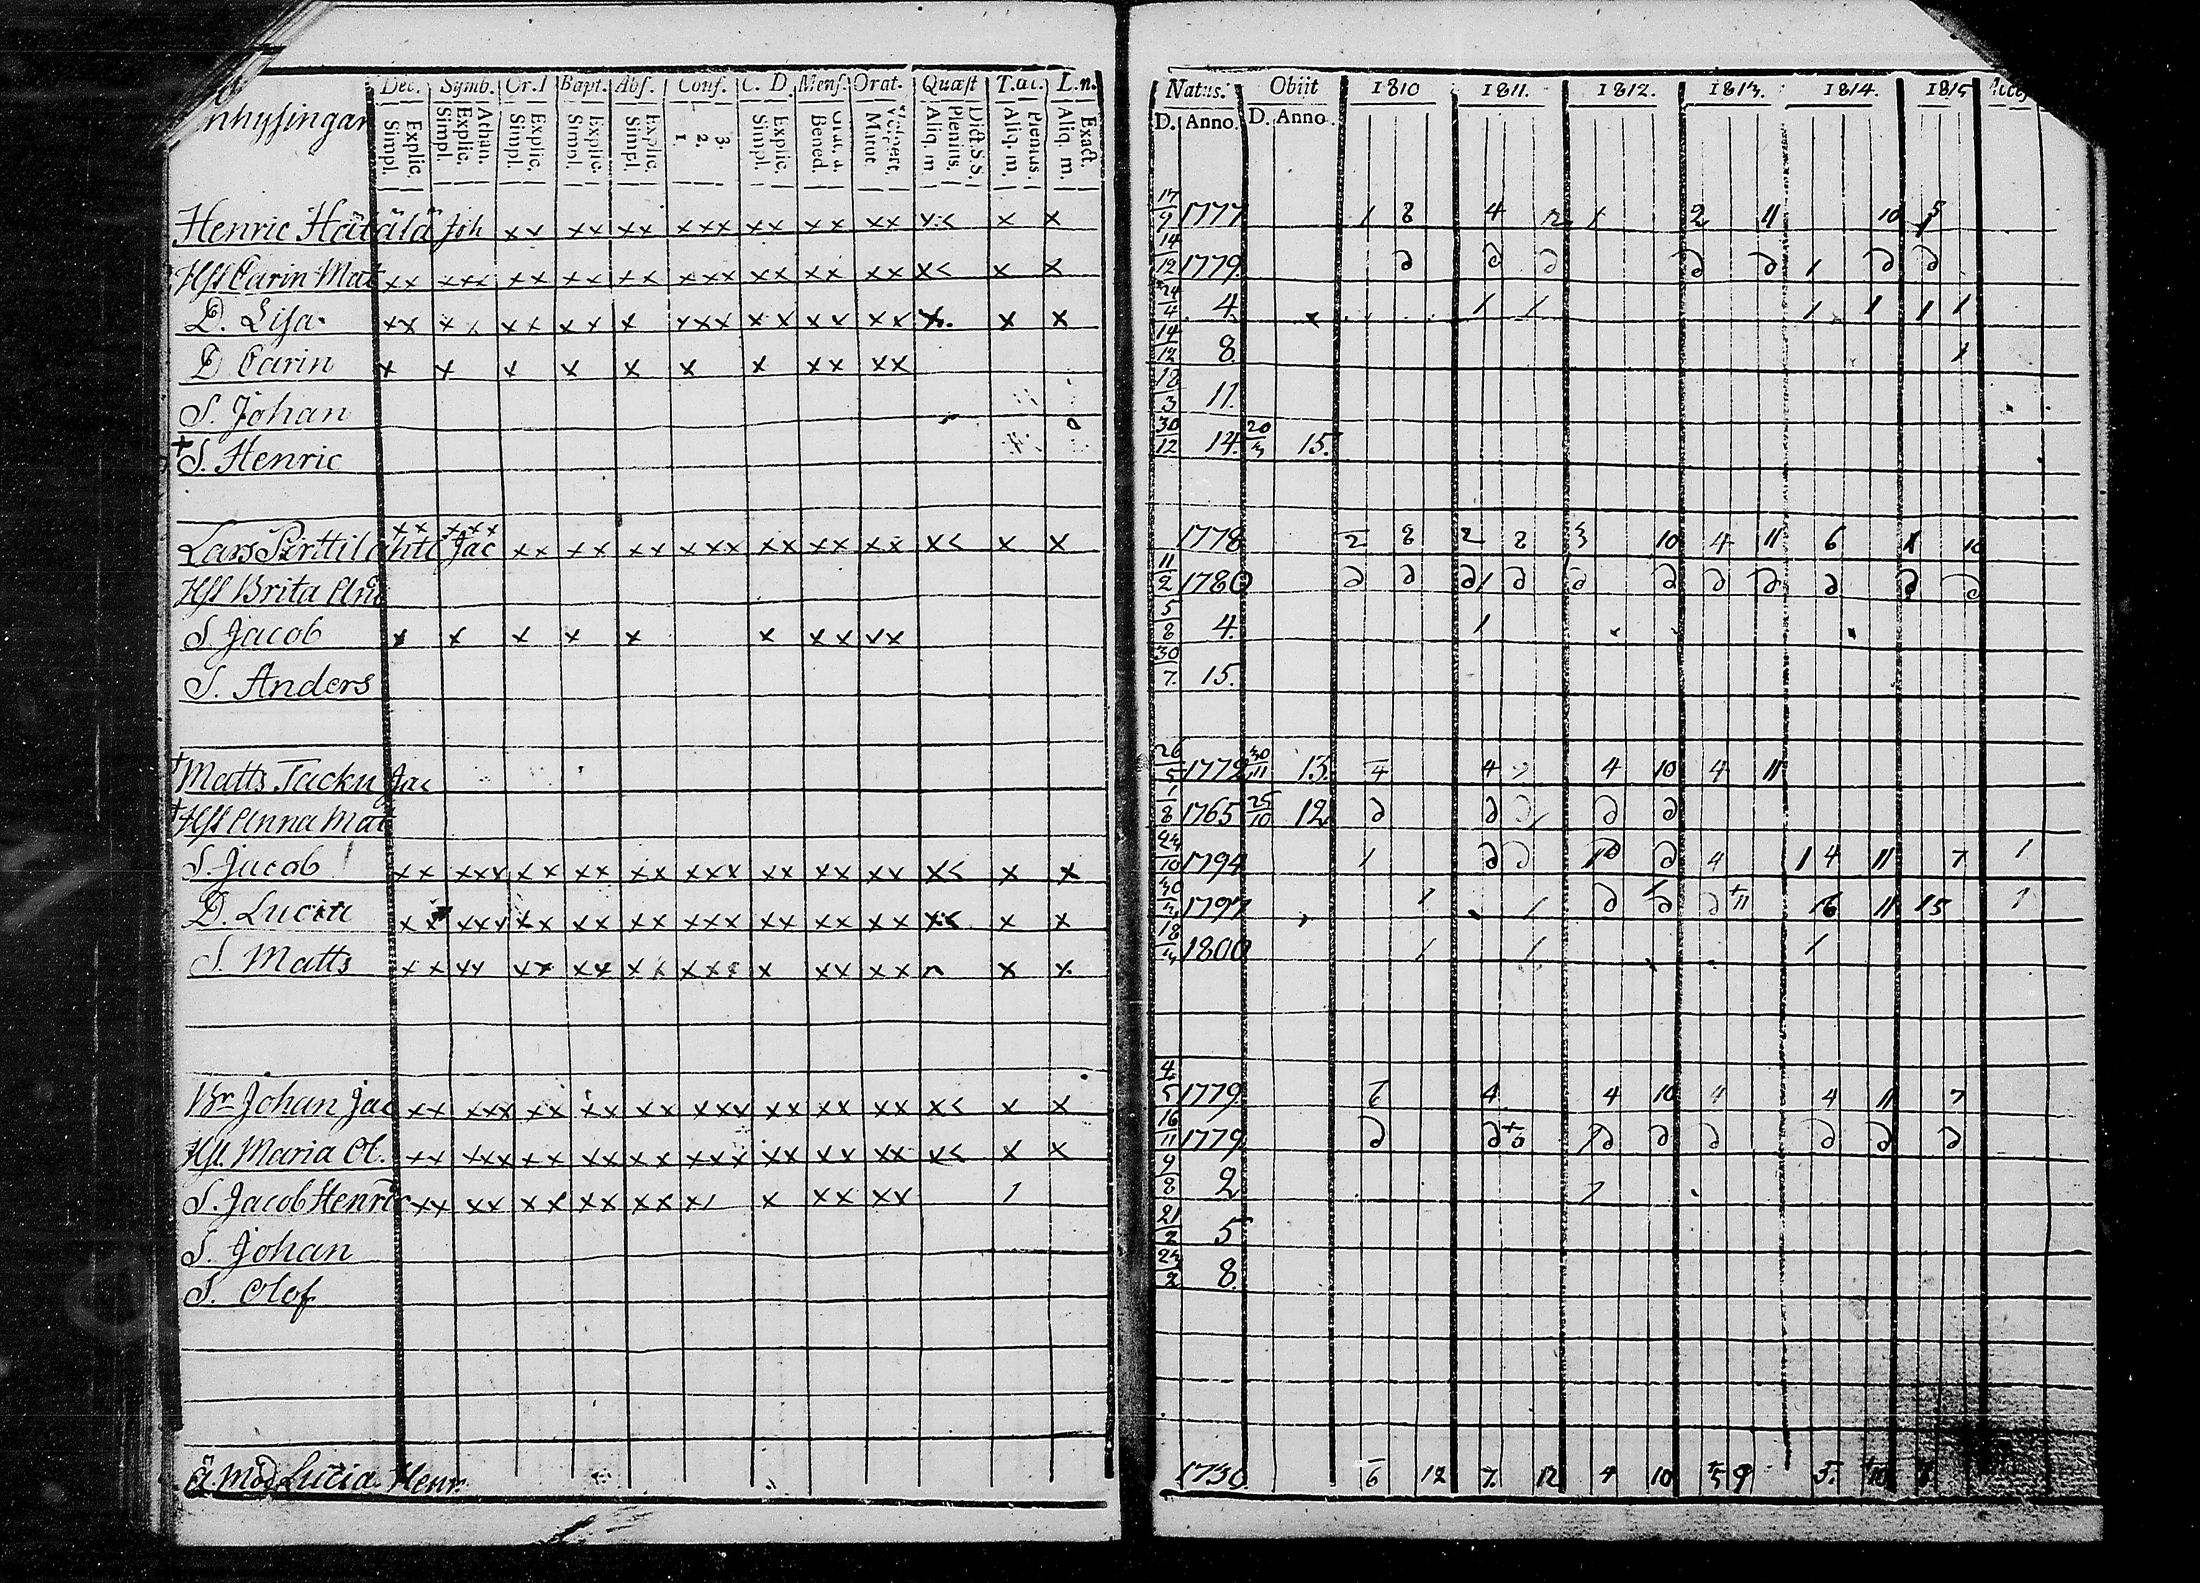 Dec. Symb. Or. Bapt. Abs. Conf. C. D. Mens. Orat. Quæst T.ac. L.n.
nhysingar Explic. Simpl. Athan. Explic. Simpl. Explic. Simpl. Explic. Simpl. Explic. Simpl. 3. 2. 1 Explic. Simpl. Bened. Matut. Dict. S.S. Plenius. Aliq. m Plenius. Aliq. m. Exact. Aliq. m.
Natus. Obiit 1810 1811. 1812. 1813. 1814. 1815
D. Anno. D. Anno.
Henric Hätälä Joh xx xx xx xxx xx xx xx x< x x 17/9 1777 1 8 4 12 1 2 11 10 5
Hst Carin Mat xx xxx xx xx xx xxx xx xx xx x< x x 14/12 1779 ∂ ∂ ∂ ∂ ∂ 1 ∂ ∂
D. Lisa xx x x xx xx x xxx xx xx xx x. x x 24/4 4. 1 1 1 1 1 1
D Carin x x x x x x x xx xx 14/12 8. 1
S. Johan 18/3 11.
+ S. Henric 30/12 14. 20/3 15.
xx xxx
Lars Jac xx xx xx xxx xx xx xx x< x x 1778 2 8 2 8 3 10 4 11 6 1 10
Hst Brita And 11/2 1780 ∂ ∂ ∂ 1 ∂ ∂ ∂ ∂ ∂ ∂ ∂ ∂
S. Jacob x x x x x x xx xx 5/8 4. 1
S. Anders 30/7. 15.
+ Matts Jacku Jac 26/5 1772 30/11 13. 4 4 4 10 4 11
+ Hst Anna Mat 1/8 1765 25/10 12. ∂ ∂ ∂ 1 ∂ ∂
S. Jacob xx xxx xx xx xx xxx xx xx xx x< x x 24/10 1794 1 ∂ ∂ 1∂ ∂ 4 1 4 11 7 1
D. Lucia xx xxx xx xx xx xxx xx xx xx x< x x 1797 1 1 ∂ ∂ ∂ 11 16 11 15 1
S. Matts xx xx xx xx xx xxx x xx xx x x 1800 1 1 1
Br Johan Jac xx xxx xx xx xx xxx xx xx xx x< x x 4/5 1779. 6 4 4 10 4 4 11 7
Hst. Maria Ol. xx xxx xx xx xx xxx xx xx xx x< x x 16/11 1779. ∂ ∂ ∂ ∂ ∂ ∂ ∂ ∂ ∂
S. Jacob Henric xx xx xx xx xx x1 x xx xx 1 9/8 2 1
S. Johan 21/2 5
S. Olof 8.
ä. mod Lucia Henr. 1736 6 12 7. 12 4 10 5 9 5. 10 8